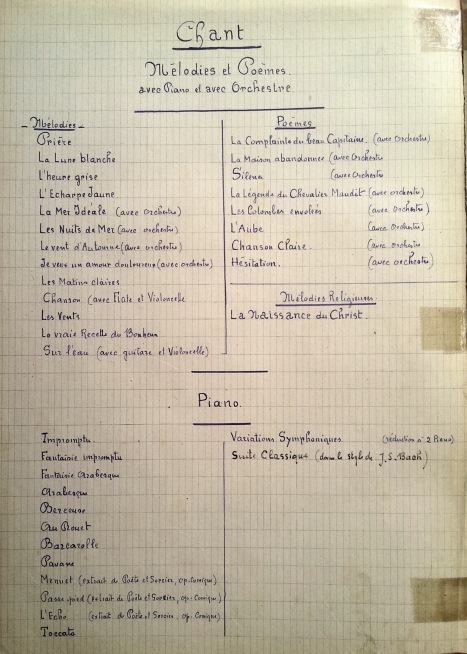 Chant
Mélodies et Poèmes.
avec Piano et avec Orchestre
Mélodies
Prière
La Lune blanche
L'heure grise
L'Echarpe Jaune
La Mer Idéale (avec orchestre)
Les Nuits de Mer (avec orchestre)
Le vent d'Automne (avec orchestre)
Je veux un amour douloureux (avec orchestre)
Les Matins claires
Chanson (avec Flûte et Violoncelle
Les Vents
La vraie Recette du Bonheur
Sur l'eau (avec guitare et Violoncelle)
Poèmes
La Complainte du beau Capitaine. (avec Orchestre)
La Maison abandonnée (avec Orchestre
Silena (avec Orchestre
La Légende du Chevalier Maudit (avec orchestre)
Les Colombes envolées (avec Orchestre)
L'Aube (avec Orchestre)
Chanson Claire. (avec Orchestre
Hésitation. (avec orchestre)
Mélodies Religieuses.
La Naissance du Christ.
Piano.
Impromptu
Fantaisie impromptu
Fantaisie Arabesque
Arabesque
Berceuse
Au Rouet
Barcarolle
Pavane
Menuet (extrait de Poète et Sorcier, op. Comique)
Passe-pied (extrait de Poète et Sorcier, op. Comique)
L'Echo (extrait de Poète et Sorcier, op. Comique)
Toccata
Variations Symphoniques (réduction à 2 Pianos)
Suite Classique (dans le style de J.S. Bach)